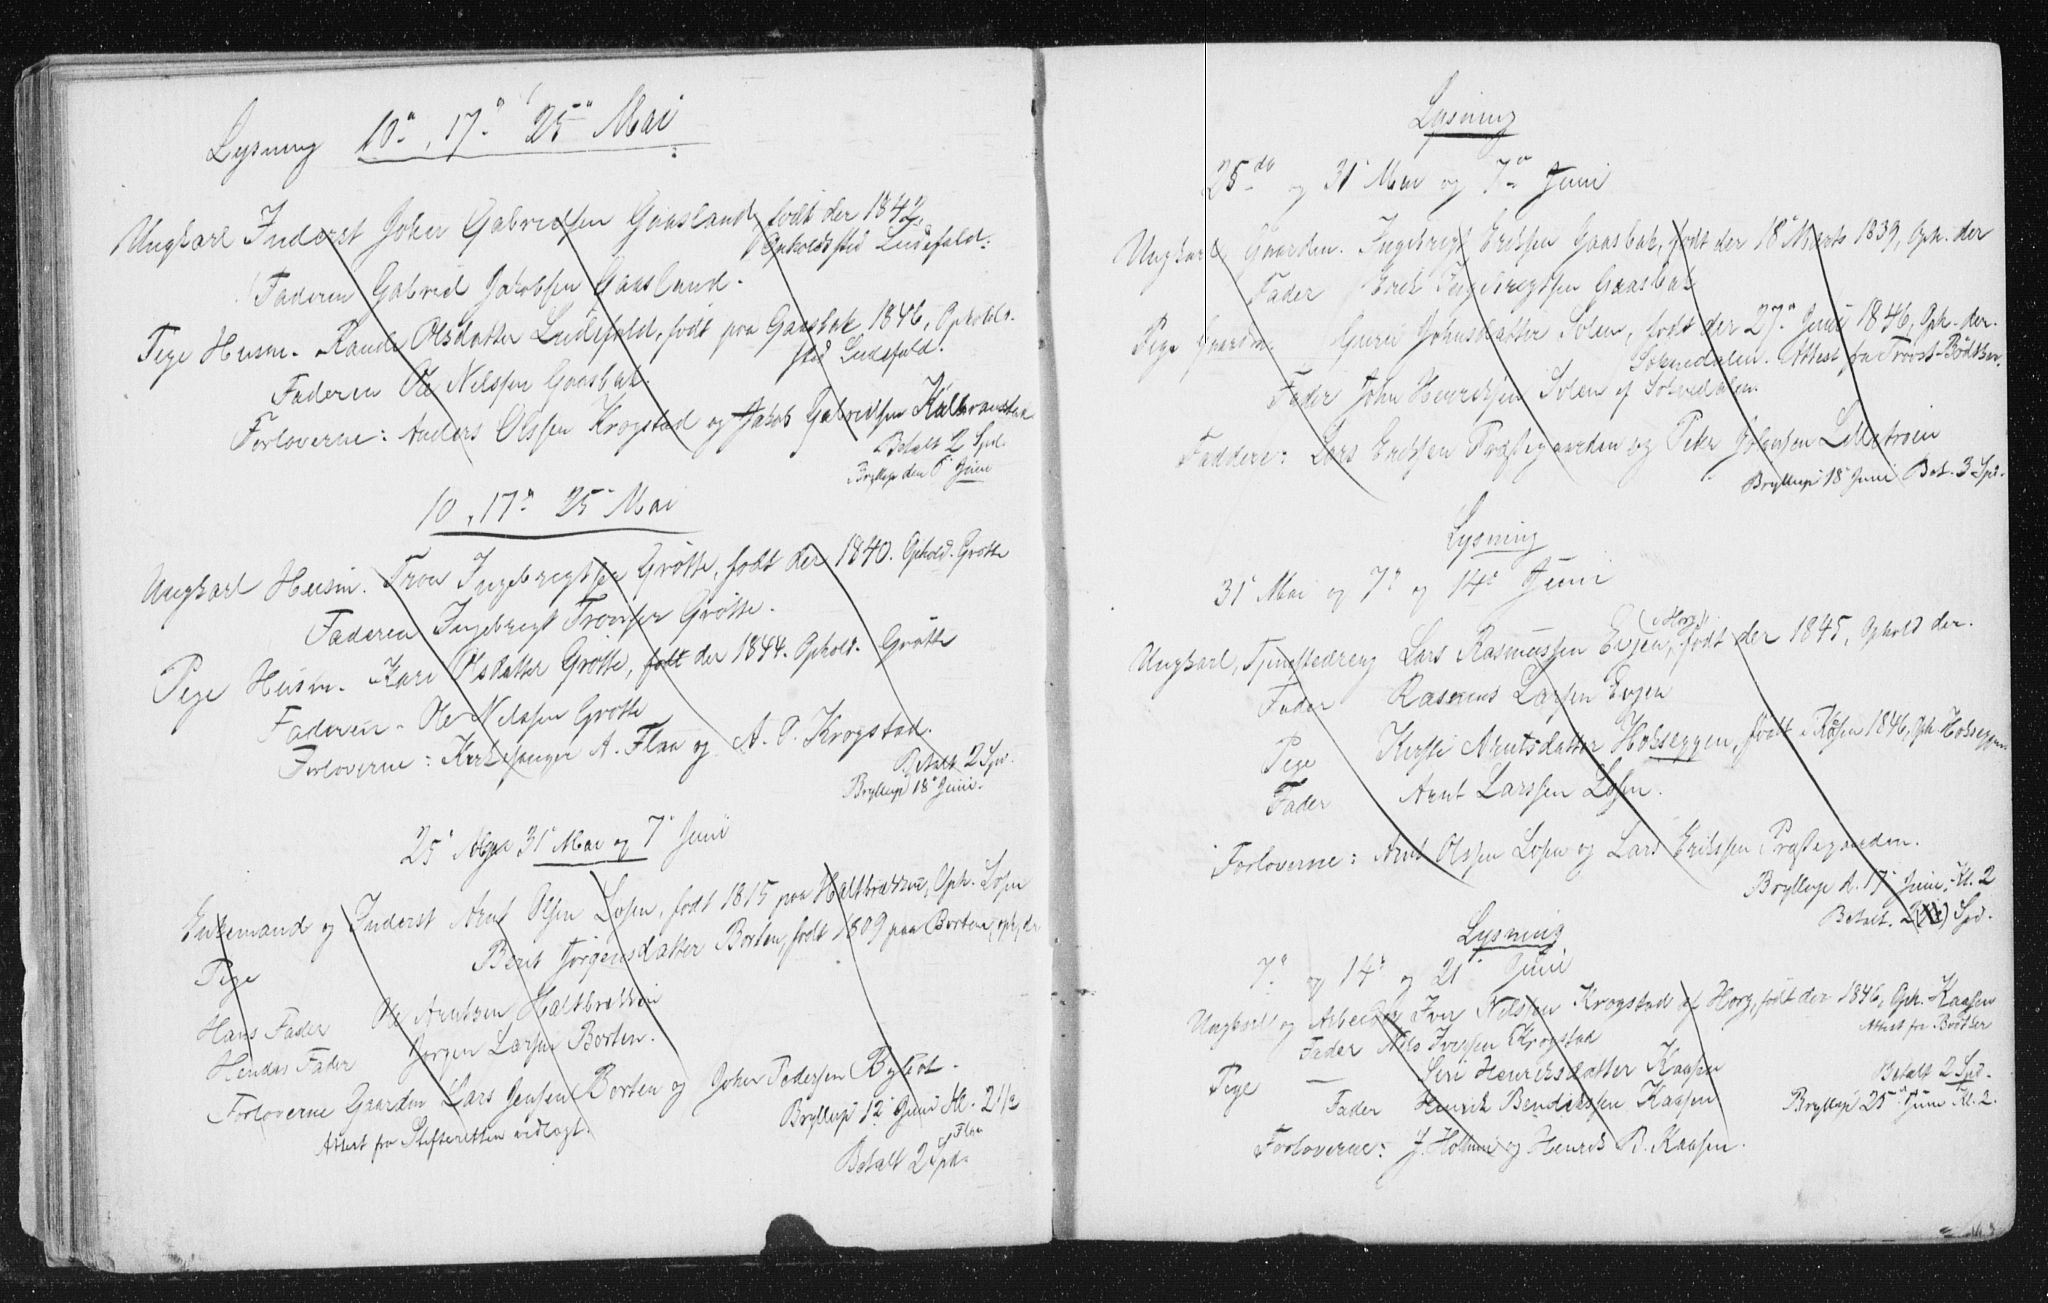 Lysning 10de, 17de 25de Mai
Ungkarl Inderst Joher Gabrielsen Gaasland, født der 1842,
Opholdssted Ludefald.
Faderen Gabriel Jakobsen Gaasland.
Pige Husm. Randi Olsdatter Ludefald, født paa Gaasbak 1846, Opholds-
sted Ludefald.
Faderen Ole Nilssen Gaasbak.
Forloverne: Anders Olssen Krogstad og Jakob Gabrielsen
Betalt 2 Spd.
Bryllup den Juni
10, 17de 25 Mai
Ungkarl Husm. Tron Ingebrigtsen Grøtte, født der 1840. Ophold. Grøtte
Faderen Ingebrigt Tronsen Grøtte.
Pige Husm. Kari Olsdatter Grøtte, født der 1844. Ophold. Grøtte
Faderen Ole Nilssen Grøtte
Forloverne: Kirkesanger A. Flaa og A. O. Krogstad.
Betalt 2 Spd.
Bryllup 18de Juni.
25de 31de Mai og 7de Juni
Enkemand og Inderst Arnt Olsen Losen, født 1815 paa Haltbrækken, Oph. Losen
Pige Berit Jørgensdatter Borten, født 1809 paa Borten, oph. der
Hans Fader Ole Arntzen Haltbrækken
Hendes Fader Jørgen Larsen Borten.
Forloverne Gaardm. Lars Jensen Borten og Joher Pedersen Bykøt.
Attest fra Skifteretten vedlagt.
Bryllup 12 Juni Kl. 2 1/2
Flaa
Betalt 2 Spd.
Lysning
25de og 31 Mai og 7de Juni
Ungkarl, Gaardm. Ingebrigt Eriksen Gaasbak, født der 18 Marts 1839, Oph. der
Fader Erik Ingebrigtsen Gaasbak
Pige Gaardm. Guru Johnsdatter Solem, født der 27de Juni 1846, Oph. der.
Soknedalen. Attest fra Provst Bødtker.
Fader John Henriksen Solem af Soknedalen.
Faddere: Lars Eriksen Præstegaarden og Peter Johnsen Lilletrøen
Bryllup 18 Juni Bet. 3 Spd.
Lysning
31 Mai og 7de og 14de Juni
(i Horg)
Ungkarl, Tjenestedreng Lars Rasmussen Evjen, født der 1845, Ophold der.
Fader Rasmus Larsen Evjen
Pige Kirsti Arntsdatter Hokseggen, født i Losen 1846, Oph. Hokseggen
Fader Arnt Larssen Losen.
Forloverne: Arnt Olssen Losen og Lars Erikssen Præstegaarden.
Bryllup d. 17 Juni, Kl. 2
Betalt. 2 Spd.
Lysning
7de og 14de og 21 Juni
Ungkarl og Arbeider Iver Nilssen Krogstad af Horg, født der 1846, Oph. Kaasen
Attest fra Bødtker
Fader Nils Iversen Krogstad
Pige — Siri Henriksdatter Kaasen
Betalt 2 Spd.
Fader Henrik Bendikssen Kaasen
Bryllup 25de Juni Kl. 2.
Forloverne: J. og Henrik B. Kaasen.